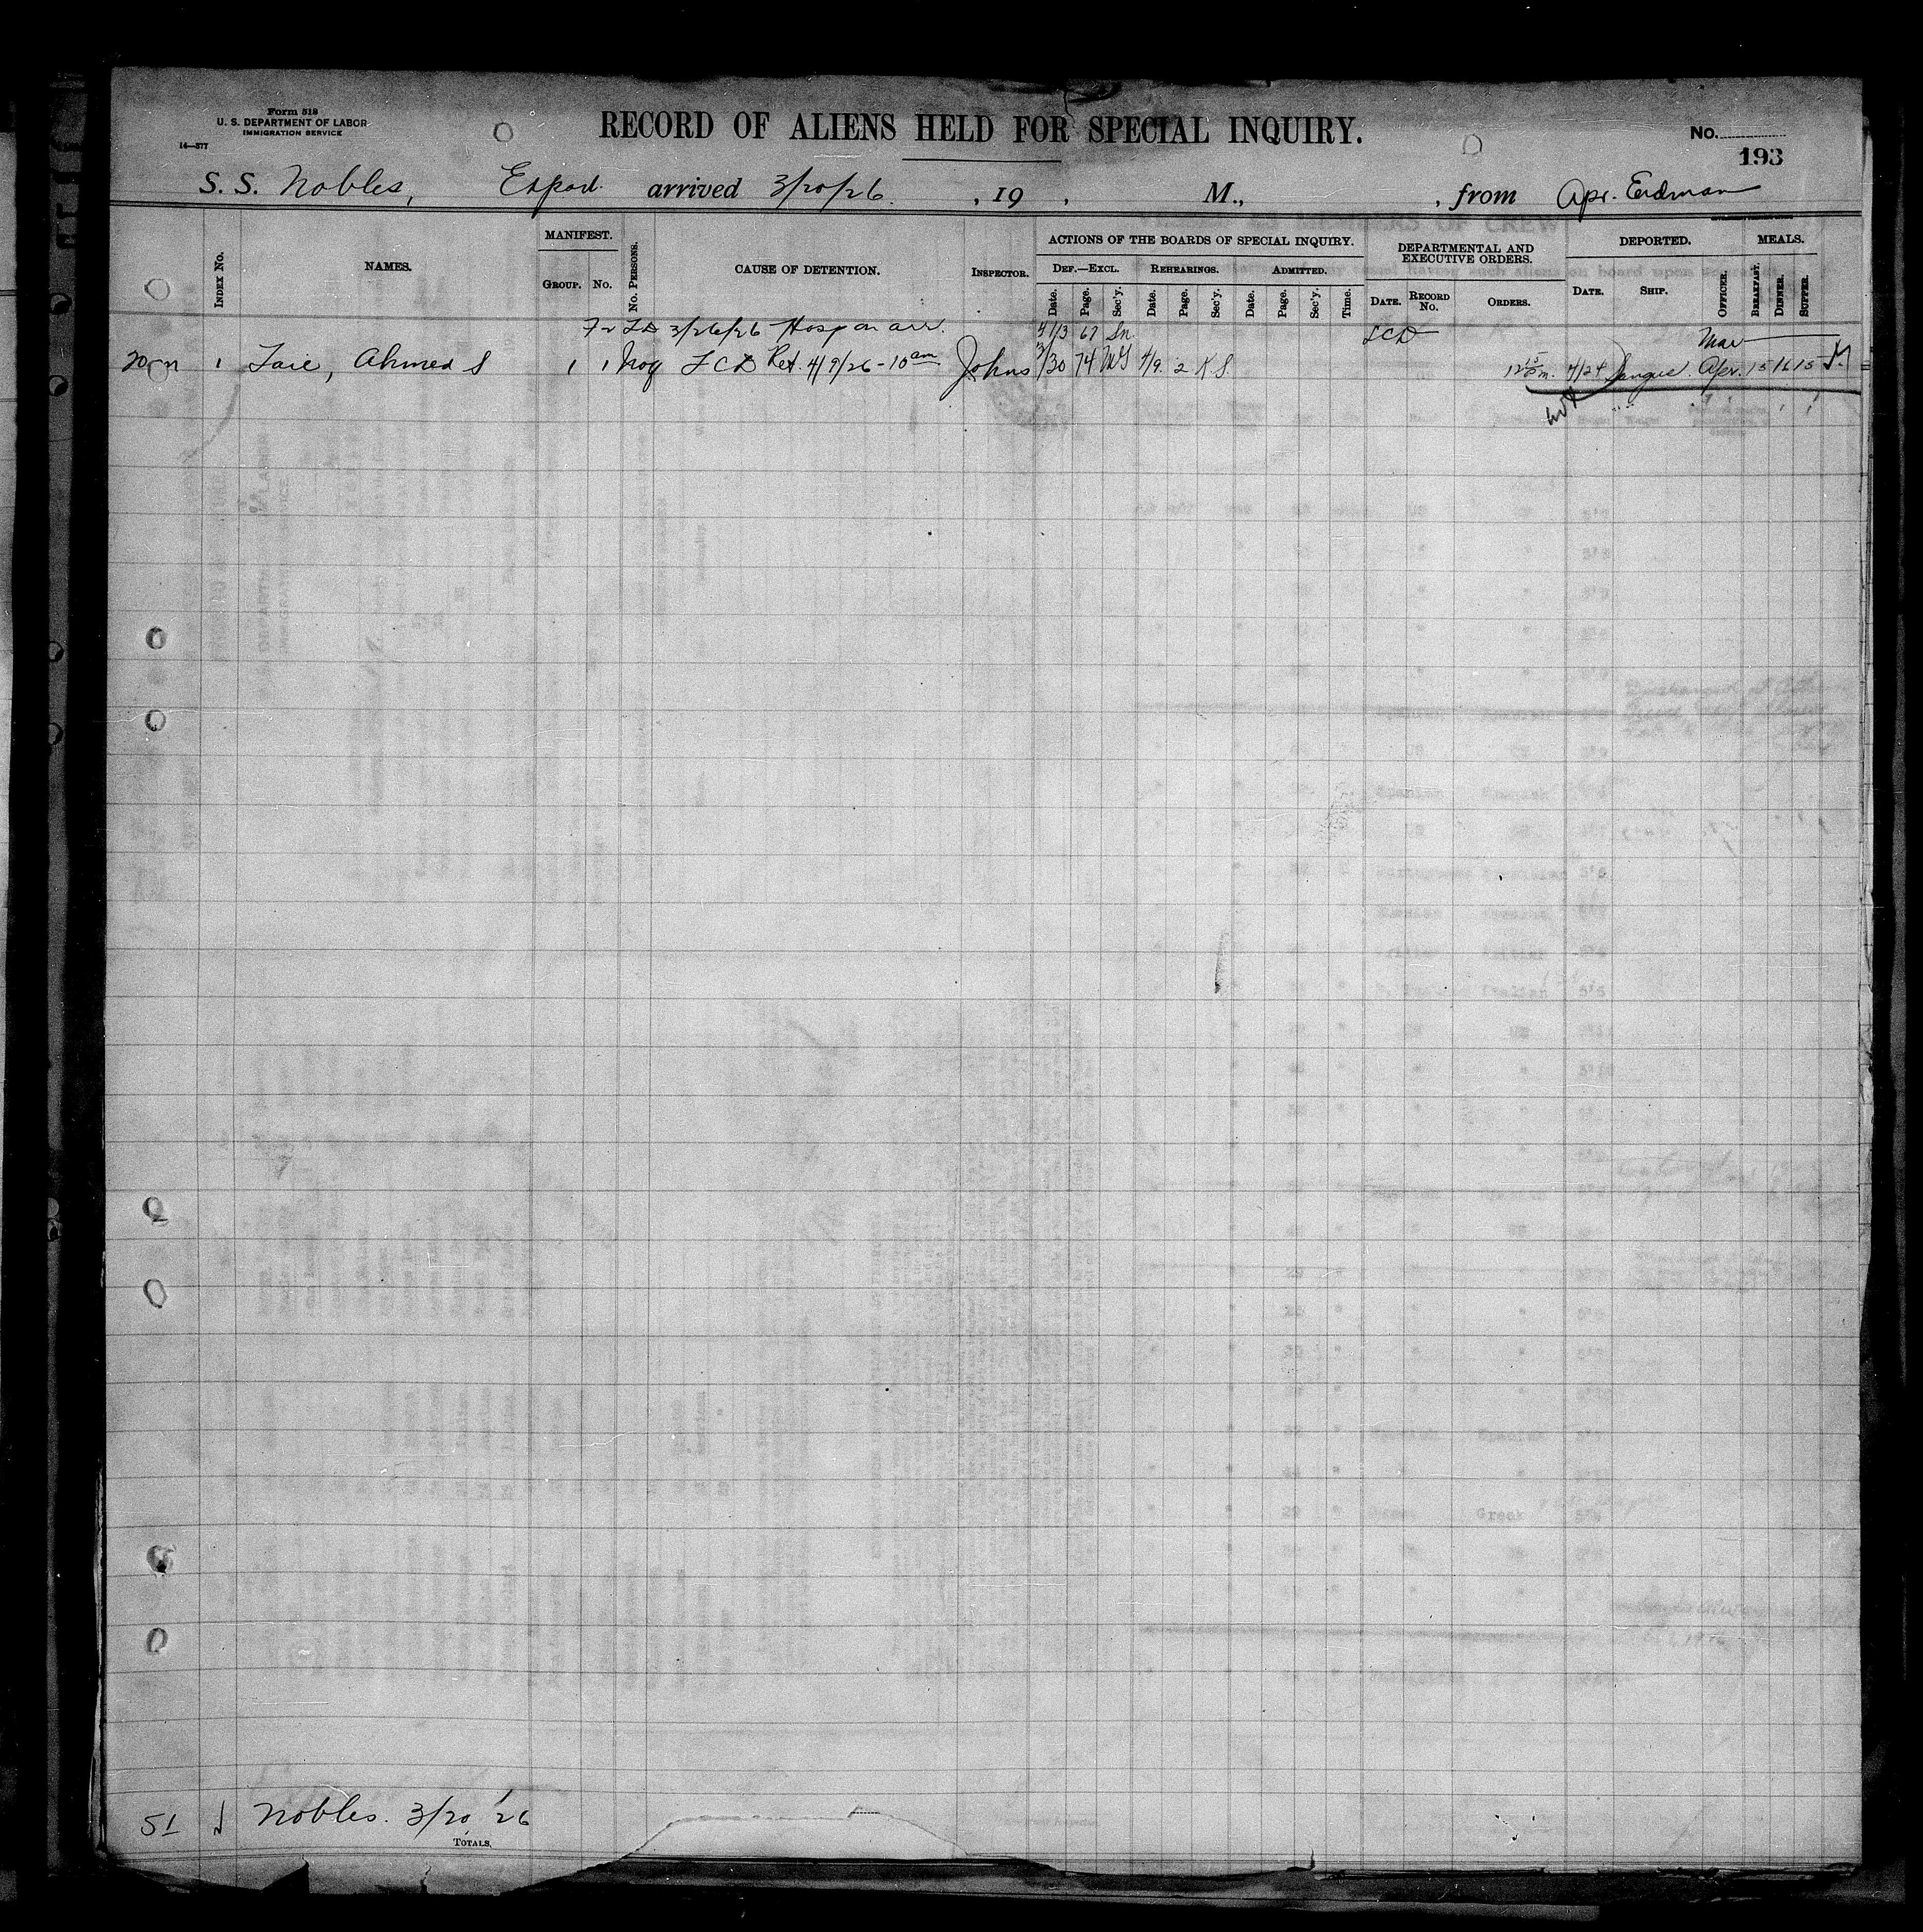 Form 518
U. S. DEPARTMENT OF LABOR
IMMIGRATION SERVICE
14—377
RECORD OF ALIENS HELD FOR SPECIAL INQUIRY.
No.
193
S. S. Nobles, Expod. arrived 3/20/26 , 19 , M., , from Apr. Erdman
INDEX No.
NAMES.
MANIFEST.
GROUP. No.
No. PERSONS.
CAUSE OF DETENTION.
INSPECTOR.
ACTIONS OF THE BOARDS OF SPECIAL INQUIRY.
DEF.—EXCL. REHEARINGS. ADMITTED.
Date. Page. Sec'y. Date. Page. Sec'y. Date. Page. Sec'y. Time.
DEPARTMENTAL AND EXECUTIVE ORDERS.
DATE. RECORD No. ORDERS.
DEPORTED.
DATE. SHIP. OFFICER.
MEALS.
BREAKFAST. DINNER. SUPPER.
3/26/26 Hosp on arr. 4/13 67 Sn. LCD Mar
1 Taie, Ahmed S 1 1 LCD Ret. 4/9/26-10 am Johns 3/30 74 WG 4/9 2 K.S. 4/24 Apr. 15 16 15
51 Nobles. 3/20/26
TOTALS.